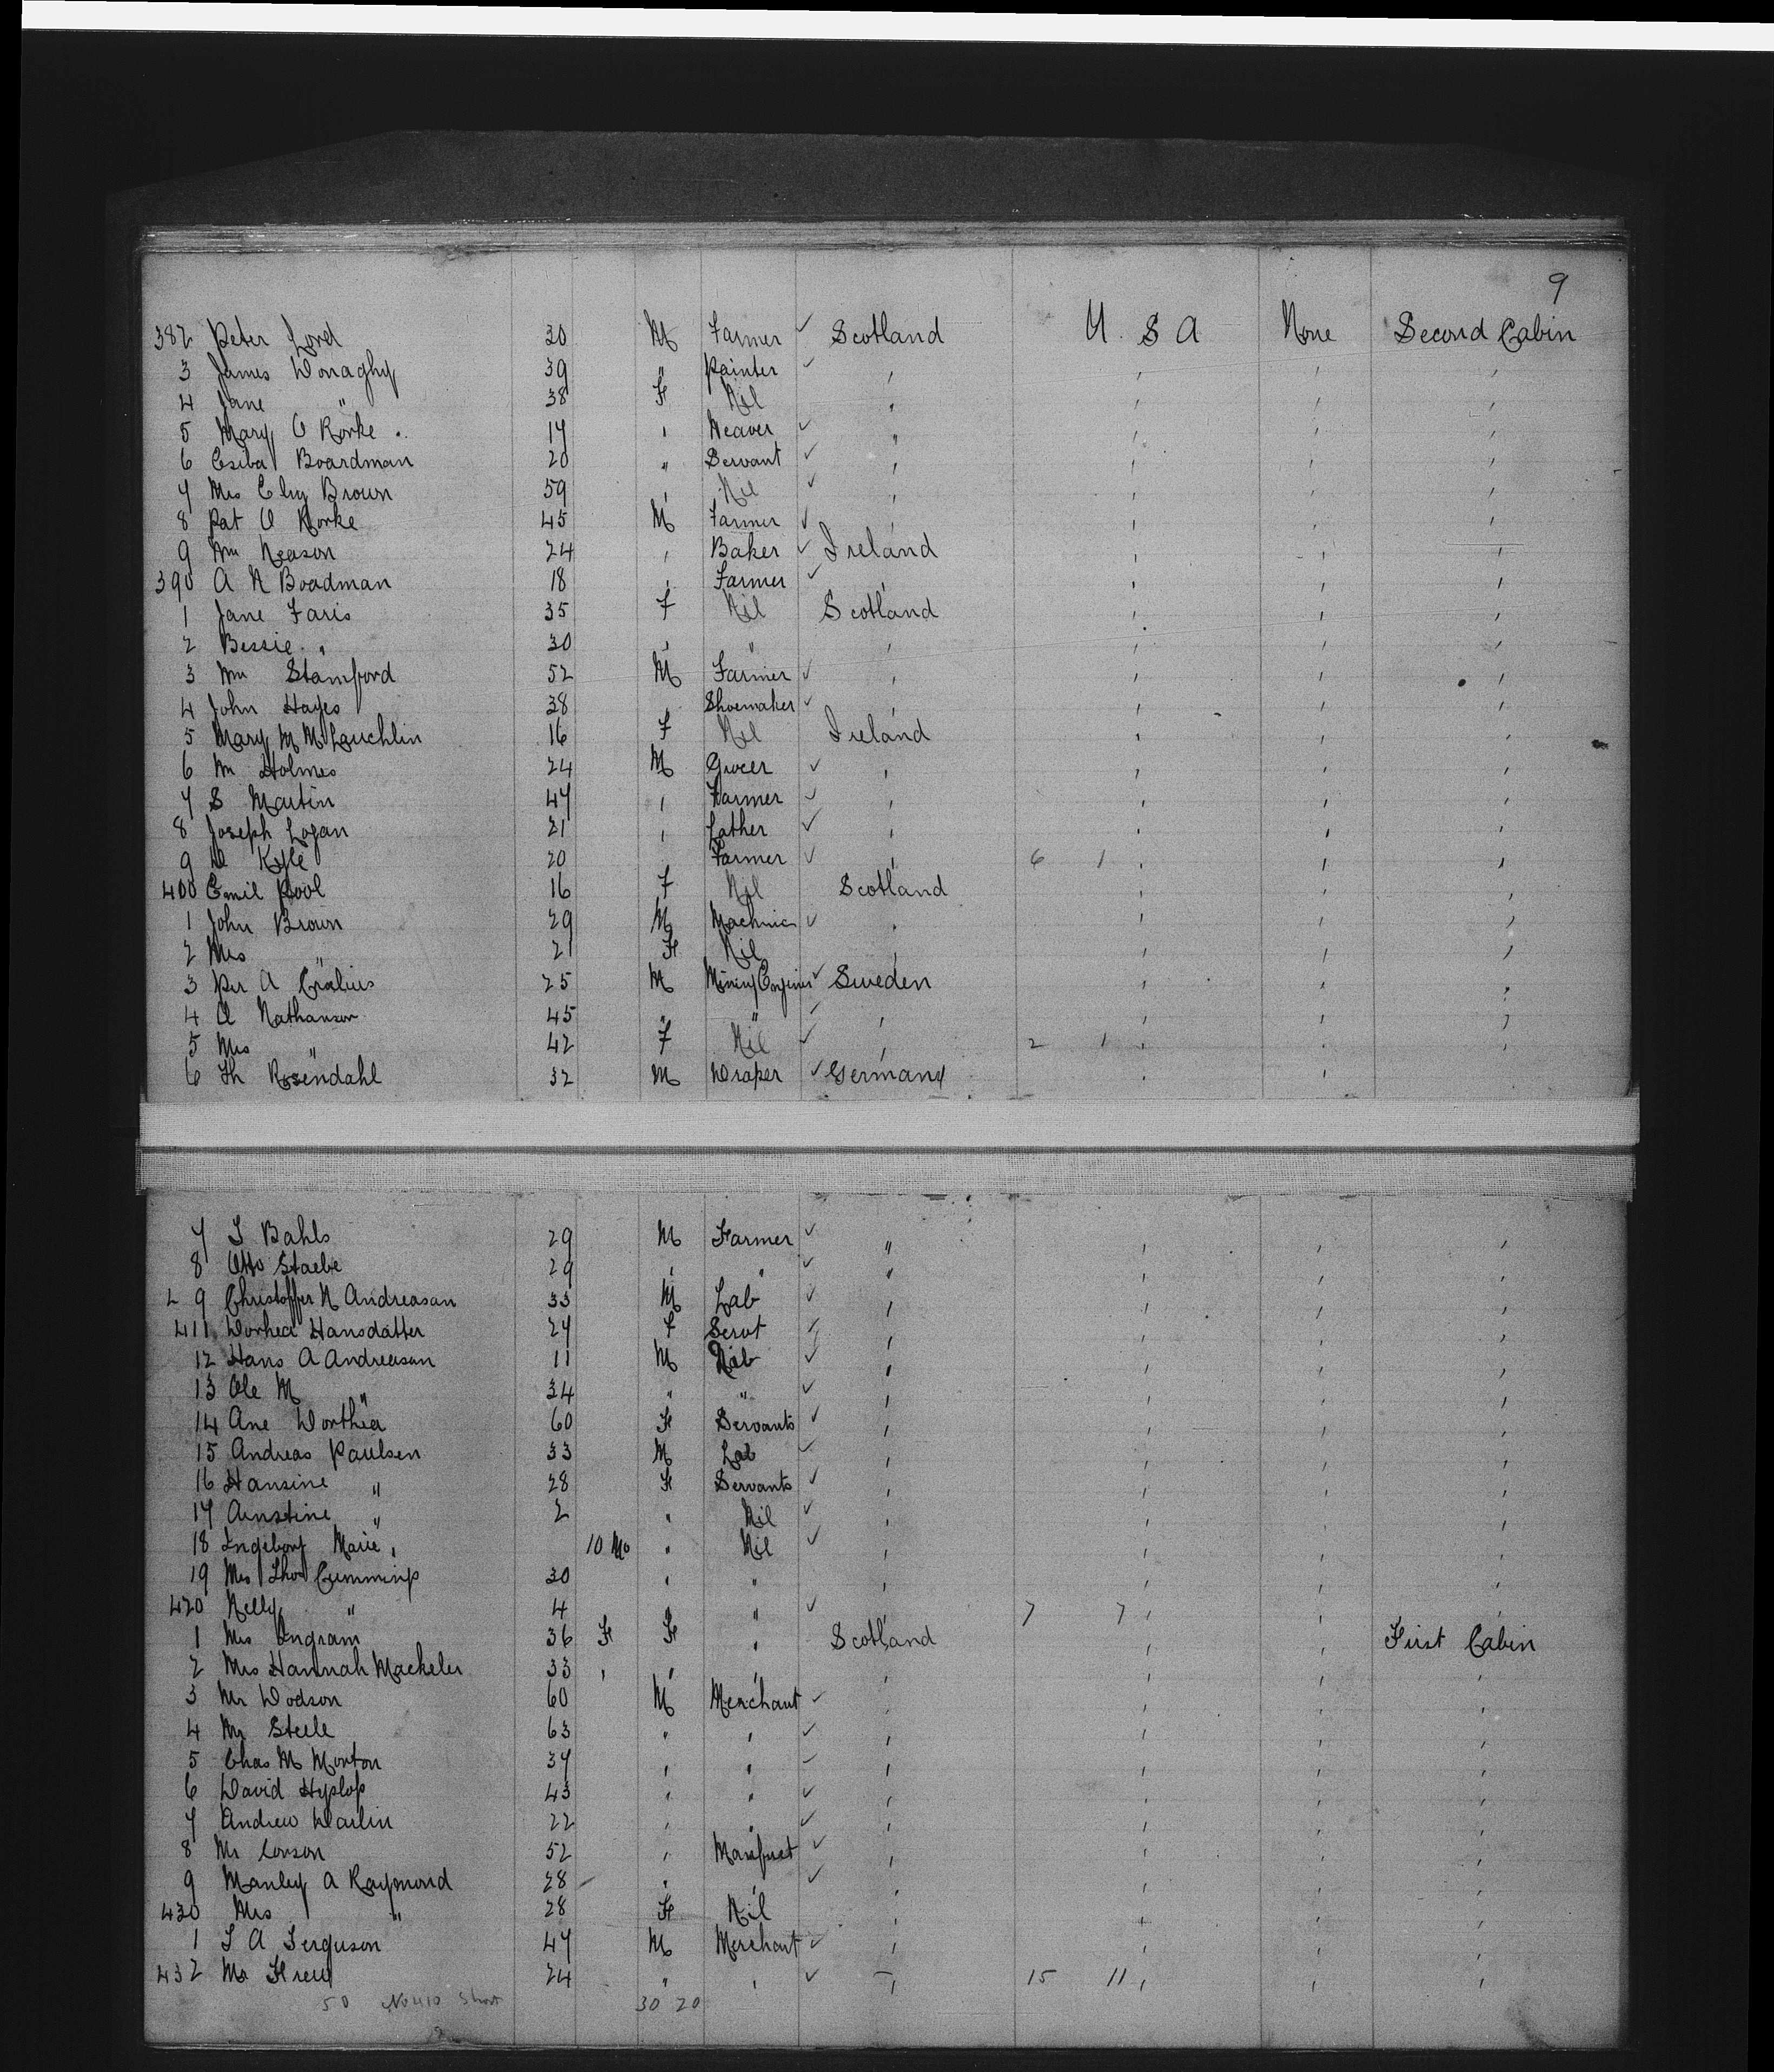 9
382 Peter Lord 30 M Farmer ✓ Scotland U. S A None Second Cabin
3 James Donaghy 39 " Painter ✓ " " " "
4 Jane " 38 F Nil " " " "
5 Mary O Rorke 17 " Weaver ✓ " " " "
6 Boardman 20 " Servant ✓ " " " "
7 Mrs Brown 59 " Nil ✓ " " " "
8 Pat O Rorke 45 M Farmer ✓ " " " "
9 Wm Neason 24 " Baker ✓ Ireland " " "
390 A N Boadman 18 " Farmer ✓ " " " "
1 Jane Faris 35 F Nil Scotland " " "
2 Bessie " 30 " " " " " "
3 Wm Stamford 52 M Farmer ✓ " " " "
4 John Hayes 38 " Shoemaker ✓ " " " "
5 Mary M McLauchlin 16 F Nil Ireland " " "
6 Wm Holmes 24 M Grocer ✓ " " " "
7 S Martin 47 " Farmer ✓ " " " "
8 Joseph Logan 21 " Lather ✓ " " " "
9 D Kyle 20 Farmer ✓ " 6 1 " " "
400 Emil Pool 16 F Nil Scotland " " "
1 John Brown 29 M Machnic ✓ " " " "
2 Mrs " 21 F Nil " " " "
3 Per A 25 M Mining Enginer ✓ Sweden " " "
4 O Nathanson 45 " " ✓ " " " "
5 Mrs " 42 F Nil ✓ " 2 1 " " "
6 Th Rosendahl 32 M Draper ✓ Germany " "
7 J Bahls 29 M Farmer ✓ " " " "
8 Otto Staebe 29 " " ✓ " " " "
9 Christoffer N Andreasan 33 M Lab ✓ " " " "
411 Dorhea Hansdatter 24 F Servt ✓ " " " "
12 Hans A Andreasan 11 M ✓ " " " "
13 Ole M " 34 " " ✓ " " " "
14 Ane Dorthea 60 F Servants ✓ " " " "
15 Andreas Paulsen 33 M Lab ✓ " " " "
16 Hansine " 28 F Servants ✓ " " " "
17 " 2 " Nil ✓ " " " "
18 Ingeborg Marie " 10 Mo " Nil ✓ " " " "
19 Mrs Thos Cummings 30 " " " " " "
420 Nelly " 4 " " ✓ " 7 7 " " "
1 Mrs Ingram 36 F F " Scotland " " First Cabin
2 Mrs Hannah Mackeler 33 " " " " " " "
3 Mr Dodson 60 M Merchant ✓ " " " "
4 Mr Steele 63 " " ✓ " " " "
5 Chas M Morton 37 " " ✓ " " " "
6 David Hyslop 43 " " ✓ " " " "
7 Andrew Darlin 22 " " ✓ " " " "
8 Mr Corson 52 " Manfuct ✓ " " " "
9 Manley A Raymond 28 " " ✓ " " " "
430 Mrs " 28 F Nil " " " "
1 J A Ferguson 47 M Merchant ✓ " " " "
432 Mr Frew 24 " " ✓ " 15 11 " " "
50 No 410 Short 30 20